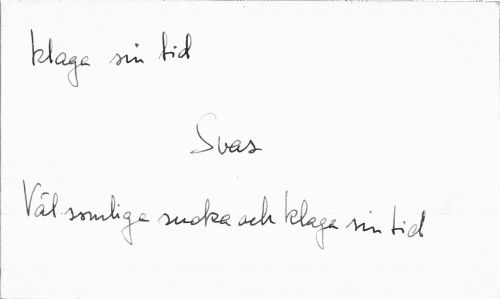 klaga sin tid
Svas
Väl somliga sucka och klaga sin tid